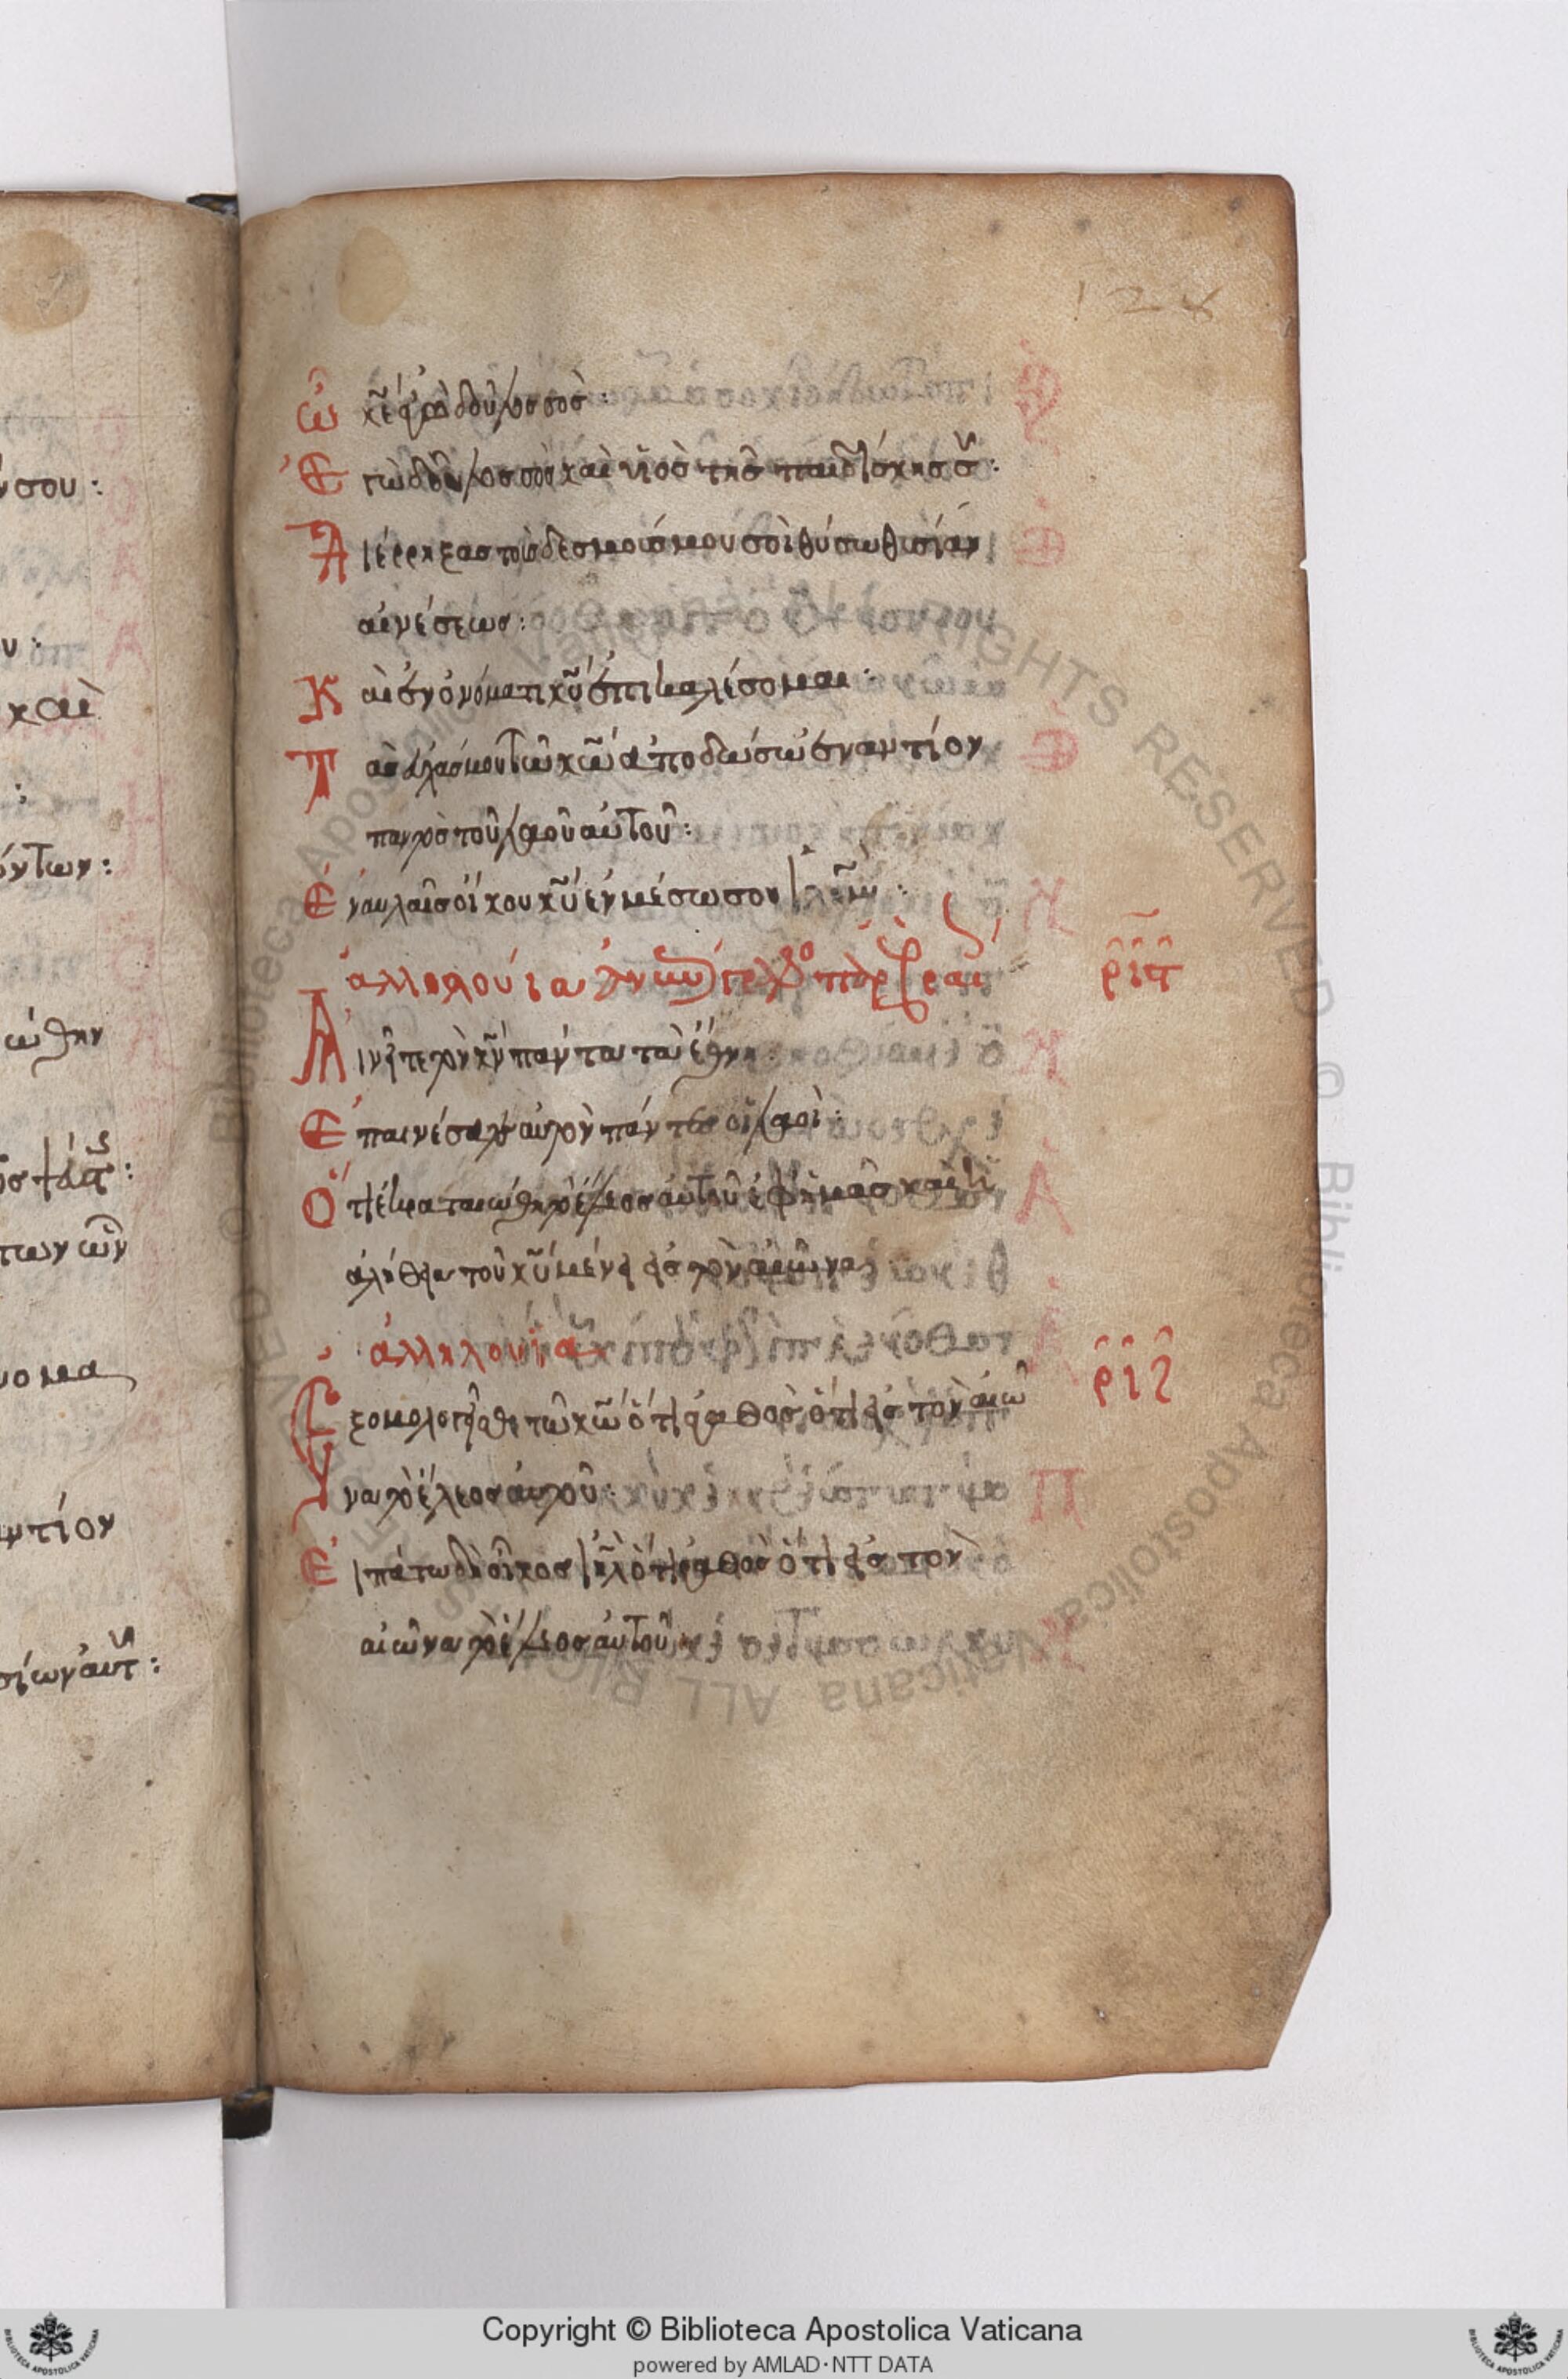 128
ὦ κε ἐγὼ δοῦλος σὸς:
Ἐγὼ δοῦλος σὸς καὶ υἱὸς τῆς παιδίσκης σου:
Διέρρηξας τοὺς δεσμούς μου σοὶ θύσω θυσίαν
αἰνέσεως:
Καὶ ἐν ὀνόματι κυ ἐπικαλέσομαι:
Τὰς εὐχάς μου τῶ κω ἀποδώσω ἐναντίον
παντὸς τοῦ λαοῦ αὐτοῦ:
Ἐν αὐλαῖς οἴκου κυ ἐν μέσω σου ιλημ:
ἀλληλούια
ριϛ
Αἰνεῖτε τὸν κν πάντα τὰ ἔθνη
Ἐπαινέσατε αὐτὸν πάντες οἱ λαοὶ:
Ὅτι ἐκραταιώθη τὸ ἔλεος αὐτοῦ ἐφ ἡμᾶς καὶ ἡ
ἀλήθεια τοῦ κυ μένει εἰς τὸν αἰῶνα:
ἀλληλουϊα
ριζ
Ἐξομολογεῖσθε τῶ κω ὅτι ἀγαθὸς ὅτι εἰς τὸν αἰῶ
να τὸ ἔλεος αὐτοῦ:
Εἰπάτω δὴ οἶκος ιηλ ὅτι ἀγαθὸς ὅτι εἰς τὸν
αἰῶνα τὸ ἔλεος αὐτοῦ
σου:
καὶ
όντων:
ώθην
ομα
αντίον
Copyright © Biblioteca Apostolica Vaticana
powered by AMLAD·NTT DATA